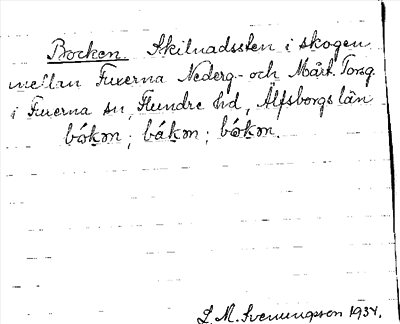 Bocken Skilnadssten i skogen
mellan Fuxerna Nederg.- och Mårt. Torsg.
i Fuxerna sn, Flundre hd, Älfsborgs län
L. M. Svenungsson 1934.